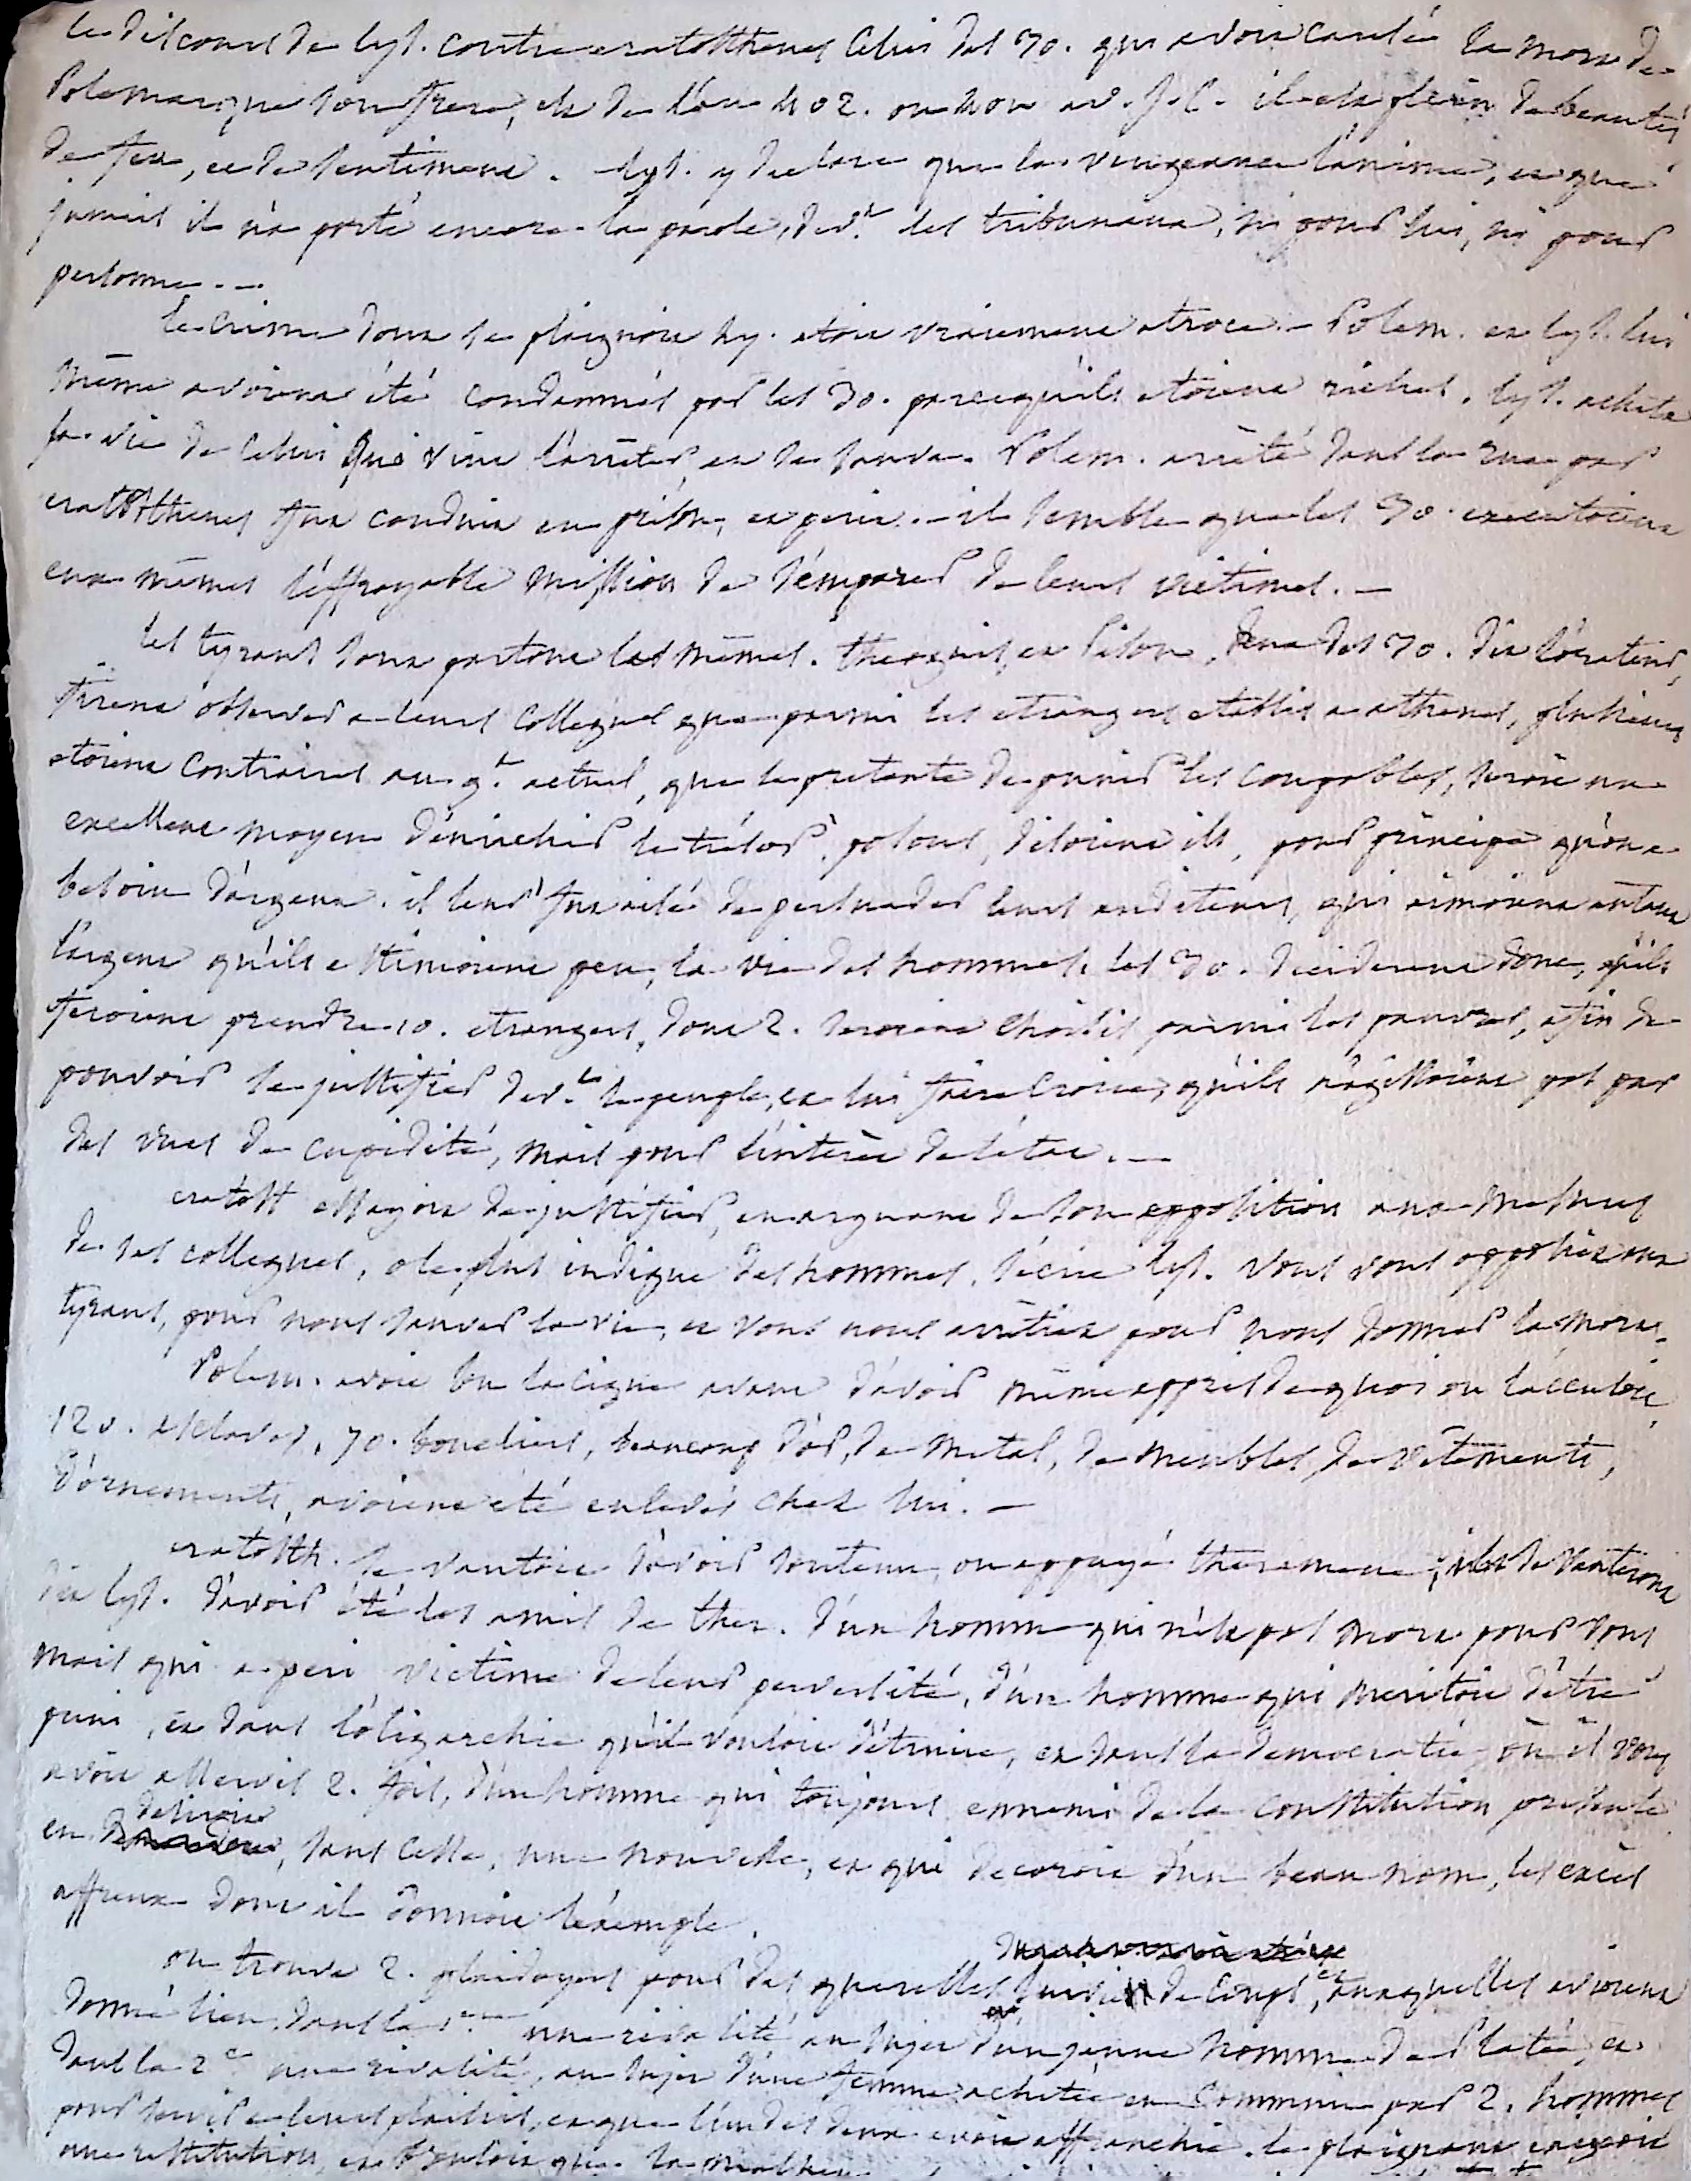 le discours de lys. contre eratosthenes l'un des 30. qui avoit causé la mort de
Polemarque son frere, est de l'an 402. ou 401 av. J. C. il est plein de beautés
de feu, et de sentiment. lys. y declare que la vengeance l'anime, et que
jamais il n'a porté encore la parole, devt. les tribunaux, ni pour lui, ni pour
personne. —
le crime dont se plaignoit ly. etoit vraiement atroce. — Polem. et lys. lui
même avoient été condamnés par les 30. parcequ'ils etoient riches. lys. acheta
sa vie de celui qui vint l'arrêter, et se sauva. Polem. arrêté dans la rue par
eratosthenes fut conduit en prison, et perit. — il semble que les 30. executoient
eux mêmes l'effroyable mission de s'emparer de leurs victimes. —
les tyrans sont partout les mêmes. theognis, et Pison, deux des 30. dit l'orateur,
firent observer a leurs collegues que parmi les etrangers etablis a athenes, plusieurs
etoient contraires au gt. actuel, que le pretexte de punir les coupables, seroit un
excellent moyen d'enrichir le trésor. posons, disoient ils, pour principe qu'on a
besoin d'argent. il leur fut aisé de persuader leurs auditeurs, qui aimoient autant
l'argent qu'ils estimoient peu, la vie des hommes. les 30. deciderent donc, qu'ils
feroient prendre 10. etrangers, dont 2. seroient choisis parmi les pauvres, afin de
pouvoir se justifier devt. le peuple, et lui faire croire, qu'ils n'agissoient pas par
des vues de cupidité, mais pour l'intérêt de l'état. —
eratost essayoit de se justifier, en arguant de son opposition aux mesures
de ses collegues, o le plus indigne des hommes, s'ecrie lys. vous vous opposiez aux
tyrans, pour nous sauver la vie, et vous nous arrêtiez pour nous donner la mort.
Polem. avoit bu la cigue avant d'avoir même appris de quoi on l'accusoit,
120. esclaves, 70. boucliers, beaucoup d'or, de metal, de meubles, de vêtements,
d'ornements, avoient été enlevés chez lui. —
eratosth. se vantoit d'avoir soutenu, ou appuyé theramene, ils se vanteront
dit lys. d'avoir été les amis de ther. d'un homme qui n'est pas mort pour vous
mais qui a peri victime de leur perversité, d'un homme qui meritoit d'être
puni, et dans l'oligarchie qu'il vouloit détruire, et dans la democratie où il vous
avoit asservis 2. fois, d'un homme qui toujours ennemi de la constitution presente
en desiroit, sans cesse, une nouvelle, et qui decoroit d'un beau nom, les excès
affreux dont il donnoit l'exemple.
on trouve 2. plaidoyers pour des querelles suivies de coups, auxquelles avoient
donné lieu, dans la 1ere une rivalité au sujet d'un jeune homme de Platée, et
dans la 2e une rivalité, au sujet d'une femme achetée en commun par 2. hommes
pour servir a leurs plaisirs, et que l'un des deux avoit affranchie. le plaignant exigeoit
une restitution, et vouloit que la